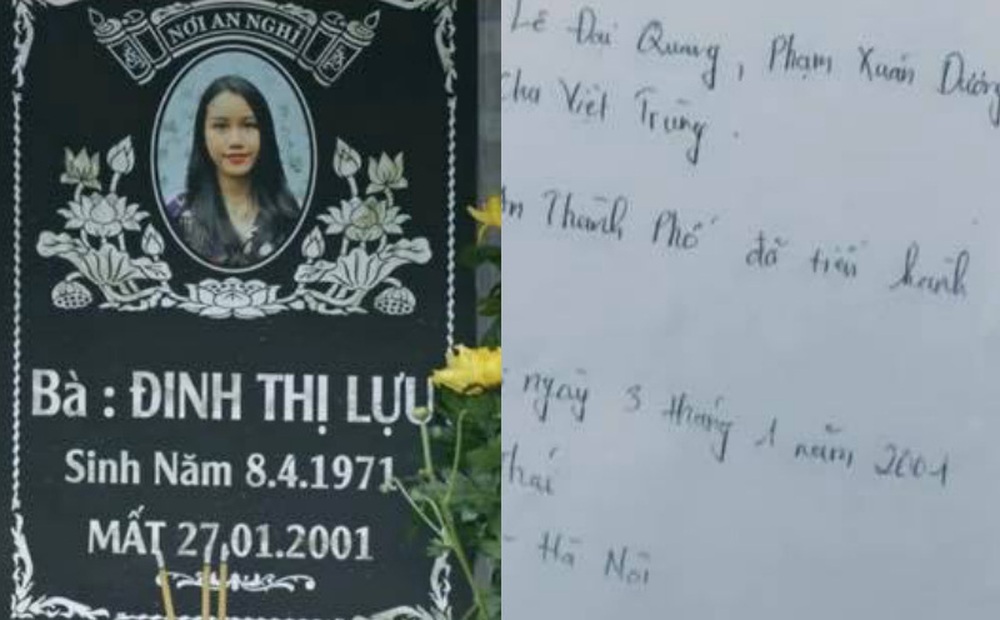 NƠI AN NGHỈ
Bà : ĐINH THỊ LỰU
Sinh Năm 8.4.1971
MẤT 27.01.2001
Lê Đại Quang, Phạm Xuân Dương
Chu Việt Trung.
Thành Phố đã tiến hành
ngày 3 tháng 1 năm 2001
- Hà Nội